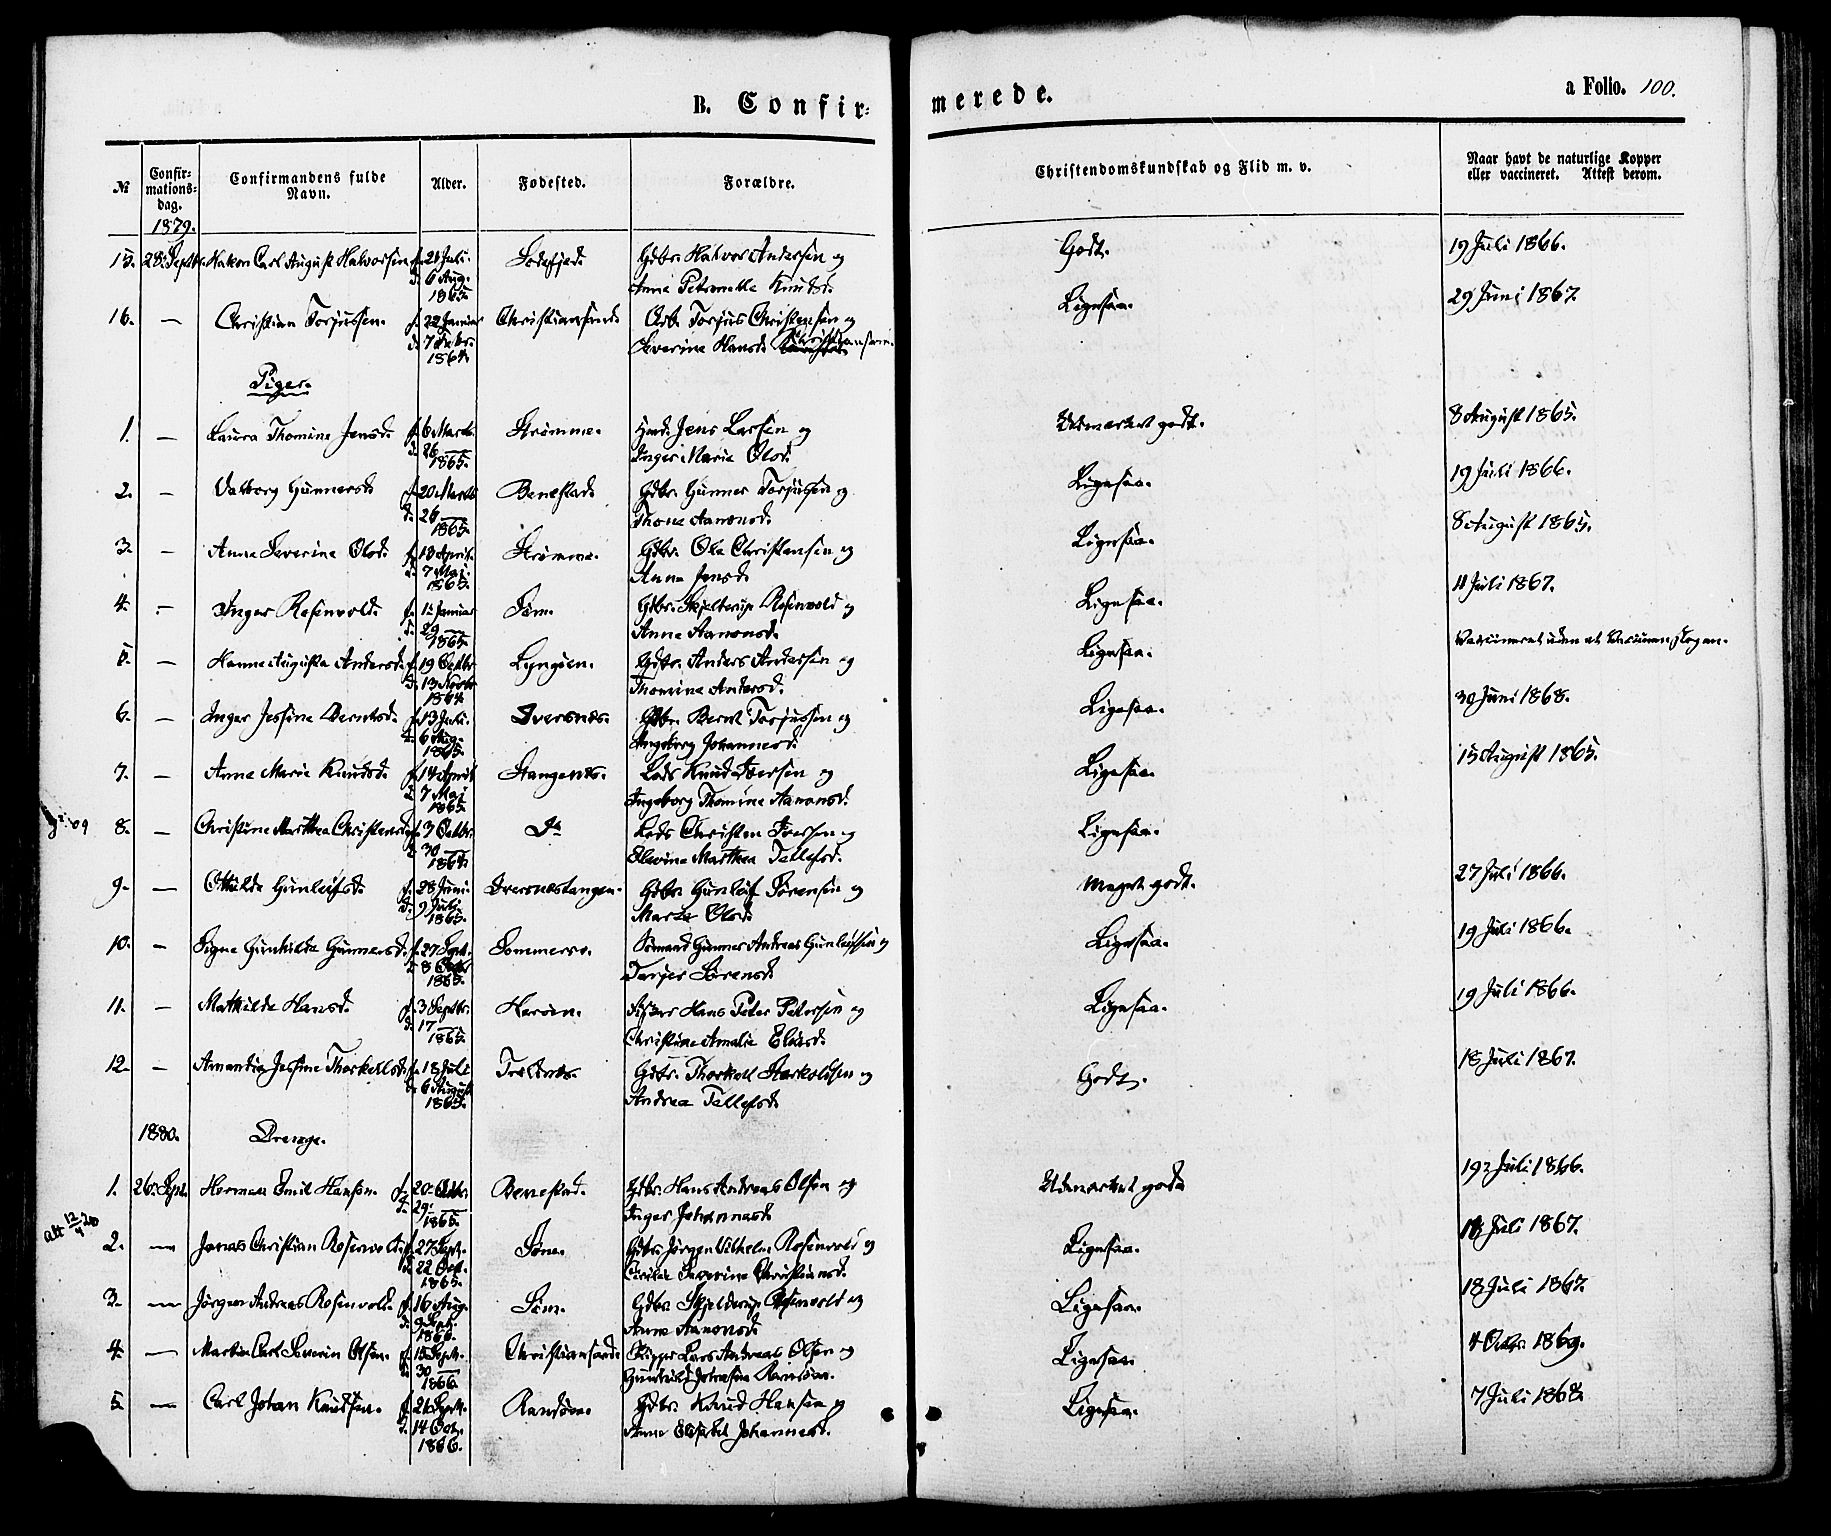 B. Confir=
merede.
a Folio. 100.
№
Confir-
mations-
dag.
Confirmandens fulde
Navn.
Alder.
Fødested.
Forældre.
Christendomskundskab og Flid m. v.
Naar havt de naturlige Kopper
eller vaccineret. Attest derom.
1879.
15. 28. Septb. Hakon Carl August Halvorsen f. 21 Juli. Godt. 19 Juli 1866.
Gdbr. Halvor Andersen og
d. 6 Aug.
1865.
Anne Petronelle Knudsd.
16. — Christian Torjussen. f. 22 Januar Christianssand Torjus Christensen og Ligesaa. 29 Juni 1867.
d. 7 Febr.
1864.
Severine Hansd.
Piger.
1. — Laura Thomine Jensd. f. 6 Marts Strømme. Jens Larsen og Udmærket godt. 8 August 1865.
d. 26 —
1865.
Inger Marie Olsd.
2. — Valborg Gunnersd. f. 20 Marts Benestad. Gdbr. Gunner Torjussen og Ligesaa. 19 Juli 1866.
d. 26 —
1865.
Thone Aanonsd.
3. — Anne Severine Olsd. f. 13 April. Strømme. Gdbr. Ole Christensen og Ligesaa. 8 August 1865.
d. 7 Maj.
1865.
Anne Jensd.
4. — Inger Rosenvold. Januar Søm. Gdbr. Skjelterup Rosenvold og Ligesaa. 11 Juli 1867.
d. 29 —
1865.
Anne Aanonsd.
5. — Hanne Augusta Andersd. f. 19 Octbr. Lyngøen. Gdbr. Anders Andersen og Ligesaa.
d. 13 Novbr
1864.
Thomine Andersd.
6. — Inger Jessine Berntsd. f. 13 Juli. Dversnes. Gdbr. Bernt Torjussen og Ligesaa. 30 Juni 1868.
d. 6 Aug.
1865.
Ingeborg Johannesd.
7. — Anne Marie Knudsd. f. 14 April Stangenes. Lods Knud Iversen og Ligesaa. 15 August 1865.
d. 7 Maj
1865.
Ingeborg Thomine Aanonsd.
8. — Christine Marthea Christensd. f. 3 Octbr. Do Lods Christen Iversen og Ligesaa.
d. 30 —
1864.
Elevine Marthea Tellefsd.
9. — Othilde Gunleifsd. f. 28 Juni. Dversnestangen. Gdbr. Gunleif Sørensen og Meget godt. 27 Juli 1866.
d. 9 Juli.
1865.
Olsd.
10. — Signe Gunhilde Gunnersd. f. 27 Sept. Sommerso. Sømand Gunner Andreas Gunleifsen og Ligesaa. 19 Juli 1866.
d. 8 Octbr
1865.
Tarjer Sørensd.
11. — Mathilde Hansd. f. 3 Septbr. Herøen. Fisker Hans Peter Petersen og Ligesaa. 19 Juli 1866.
d. 17 —
1865.
Christine Amalie Eliasd.
12. — Amandia Jessine Thorkellsd. f. 18 Juli Trelnes. Gdbr. Thorkell Starkoldsen og Godt. 18 Juli 1867.
d. 6 August
1865.
Andrea Tellefsd.
1880. Drenge.
1. 26. Sept. Herman Emil Hansen. f. 20 Benestad. Gdbr. Hans Andreas Olsen og Udmærket godt 19 Juli 1866.
d. 29
1865.
Inger Johannesd.
att 12/4 20
2. — Jonas Christian Rosenvold. f. 27 Sept. Søm. Gdbr. Jørgen Vilhelm Rosenvold og Ligesaa. 18 Juli 1867.
d. 22 Oct.
1865.
Cecilie Severine Christiansd.
3. — Jørgen Andreas Rosenvold. f. 16 Aug. Søm. Gdbr. Skjelderup Rosenvold og Ligesaa. 18 Juli 1867.
d. 9 Sept.
1866.
Anne Aanonsd.
4. — Martin Carl Severin Olsen. f. 15 Sept. Christianssand Skipper Lars Andreas Olsen og Ligesaa. 4 Octbr. 1869.
d. 30 —
1866.
Gunhild
5. — Carl Johan Knudsen. f. 21 Sept. Randøen. Gdbr. Knud Hansen og Ligesaa. 7 Juli 1868.
d. 14 Oct.
1866.
Anne Elisabet Johannesd.